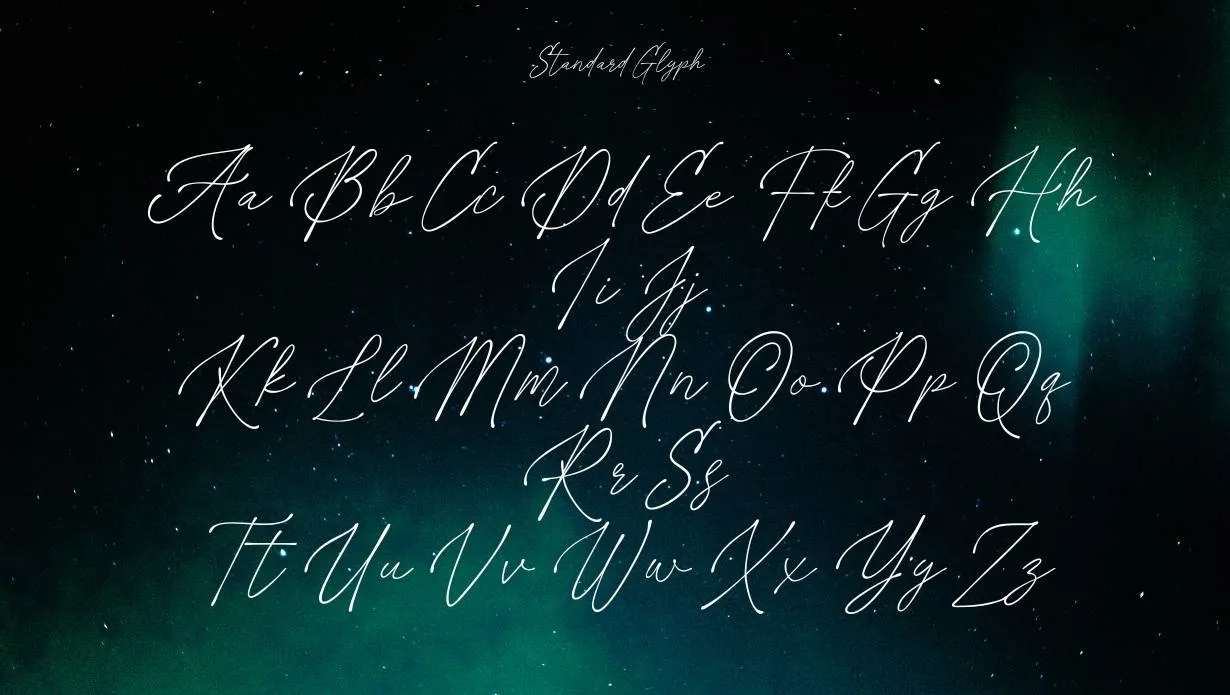 Standard Glyph
Aa Bb Cc Dd Ee Ff Gg Hh
Ii Jj
Kk Ll Mm Nn Oo Pp Qq
Rr Ss
Tt Uu Vv Ww Xx Yy Zz